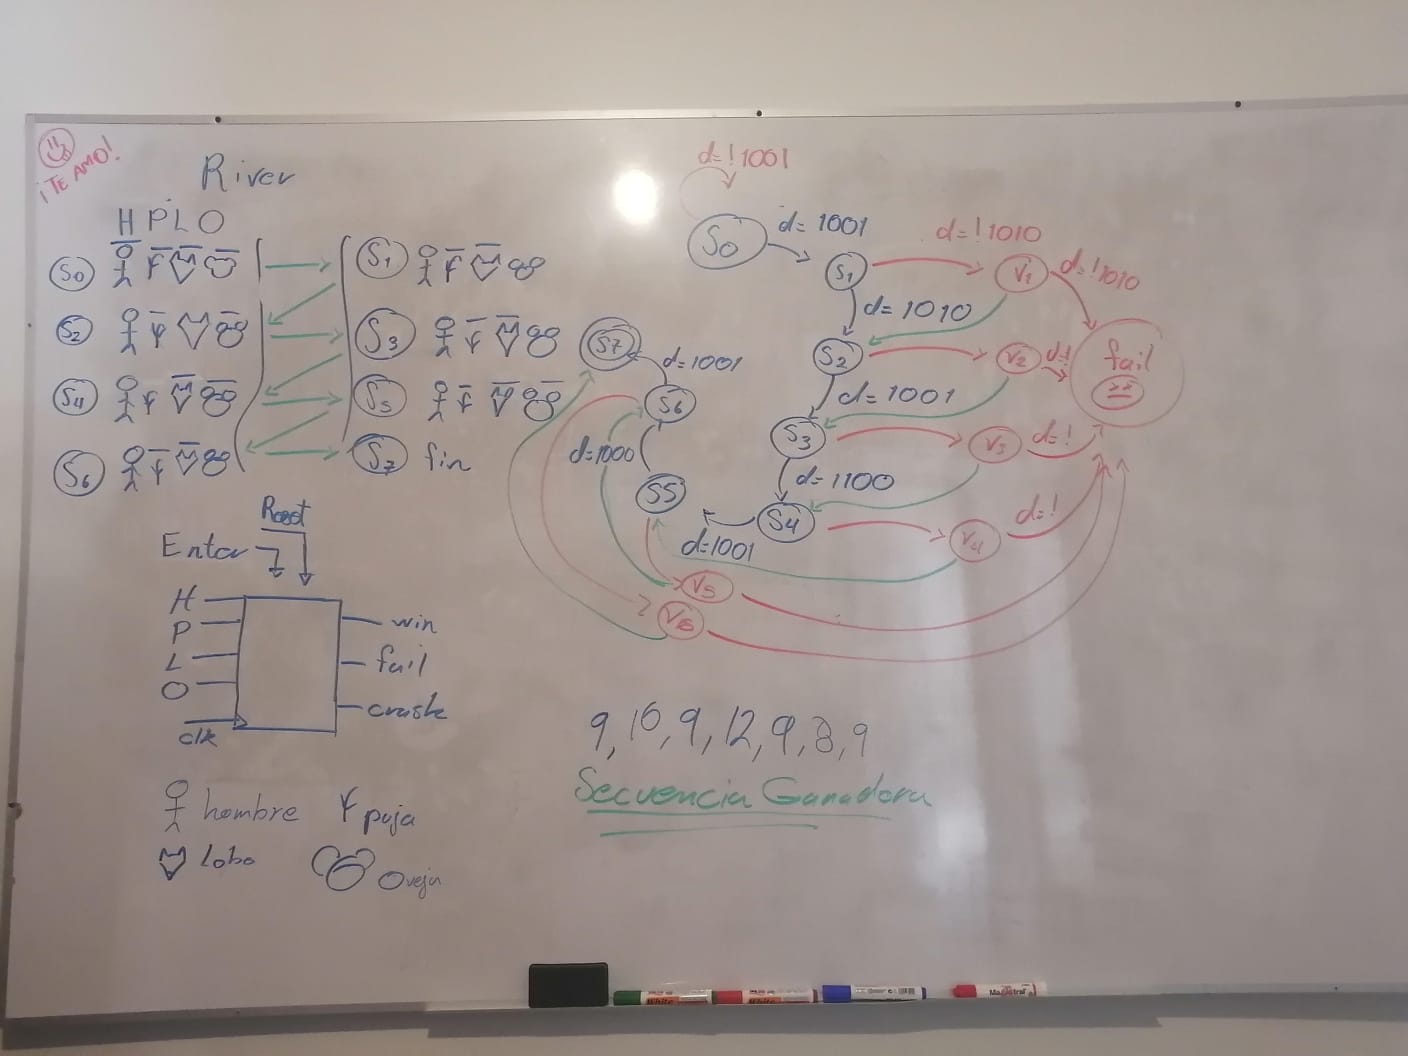 ¡TE AMO!
River
H P L O
S0
S1
S2
S3
S4
S5
S6
S7 fin
Enter
H
P
L
O
clk
win
fail
hombre
paja
Lobo
Oveja
d=!1001
S0
d=1001
S1
d=!1010
V1
d=!1010
d=1010
S2
V2
d=!
fail
d=1001
S3
V3
d=!
d=1100
S4
V4
d=!
d=1001
S5
V5
d=1000
S6
V6
d=1001
S7
9,10,9,12,9,8,9
Secuencia Ganadora
White
White